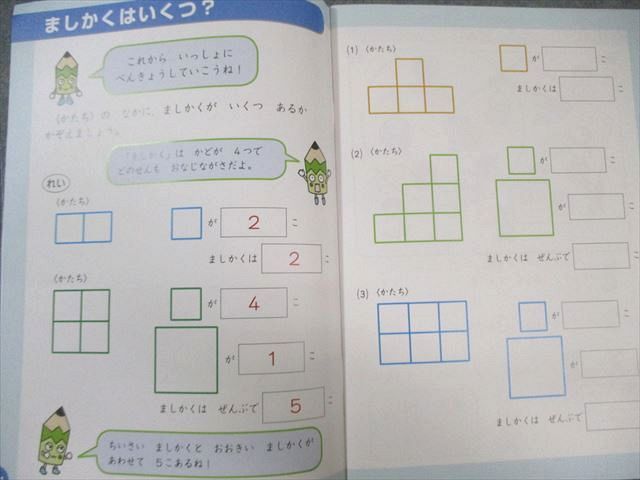 ましかくはいくつ？
これから いっしょに
べんきょうしていこうね！
〈かたち〉の なかに、ましかくが いくつ あるか
かぞえましょう。
「ましかく」は かどが 4つで
どのせんも おなじながさだよ。
れい
〈かたち〉
が 2 こ
ましかくは 2 こ
〈かたち〉
が 4 こ
が 1 こ
ましかくは ぜんぶで 5 こ
ちいさい ましかくと おおきい ましかくが
あわせて 5こあるね！
(1) 〈かたち〉
が こ
ましかくは こ
(2) 〈かたち〉
が こ
が こ
ましかくは ぜんぶで
(3) 〈かたち〉
が こ
が
ましかくは ぜんぶで